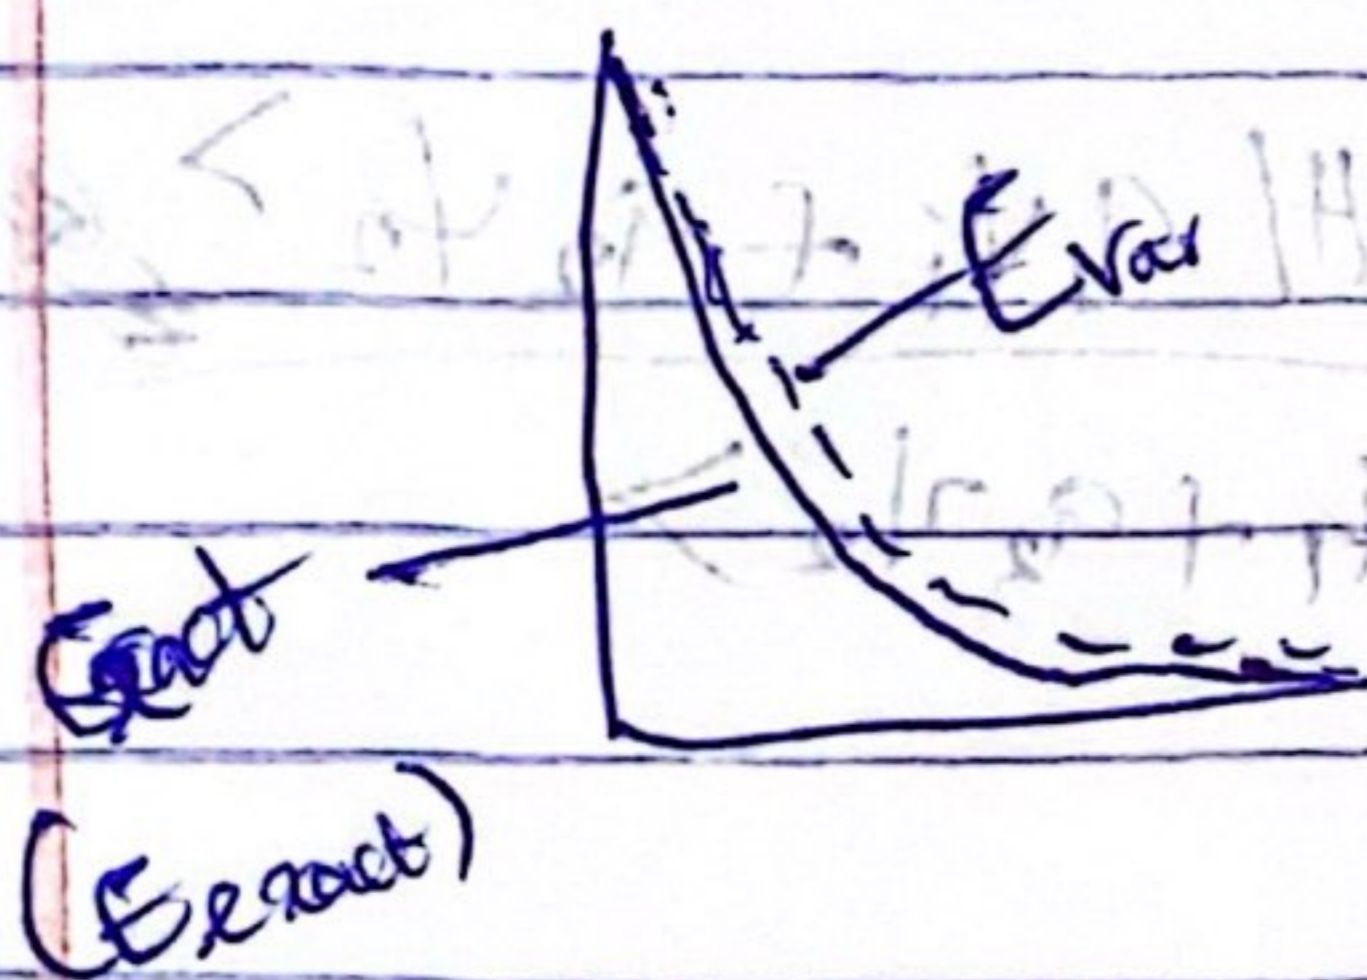 Evar
Eexact
(Eexact)